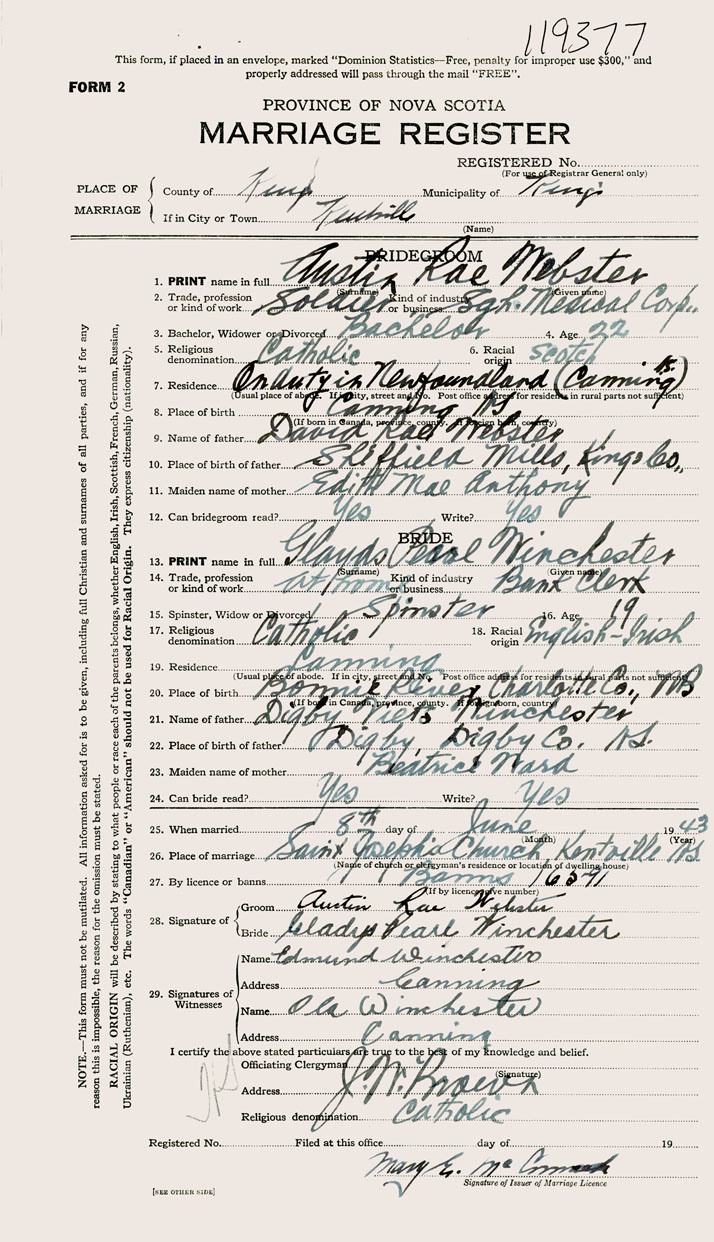 119377
This form, if placed in an envelope, marked “Dominion Statistics—Free, penalty for improper use $300,” and
properly addressed will pass through the mail “FREE”.
FORM 2
PROVINCE OF NOVA SCOTIA
MARRIAGE REGISTER
REGISTERED No.
(For use of Registrar General only)
PLACE OF MARRIAGE
County of Kings Municipality of Kings
If in City or Town Kentville
(Name)
BRIDEGROOM
1. PRINT name in full Austin Rae Webster
(Surname) (Given name)
2. Trade, profession or kind of work Soldier Kind of industry or business Sgt. Medical Corp.
3. Bachelor, Widower or Divorced Bachelor 4. Age 22
5. Religious denomination Catholic 6. Racial origin Scotch
7. Residence On duty in Newfoundland (Canning N.S.)
(Usual place of abode. If in city, street and No. Post office address for residents in rural parts not sufficient)
8. Place of birth Canning NS
(If born in Canada, province, county. If foreign born, country)
9. Name of father David Rae Webster
10. Place of birth of father Sheffield Mills, Kings Co.,
11. Maiden name of mother Edith Mae Anthony
12. Can bridegroom read? Yes Write? Yes
BRIDE
13. PRINT name in full Glayds Pearl Winchester
(Surname) (Given name)
14. Trade, profession or kind of work at home Kind of industry or business Bank Clerk
15. Spinster, Widow or Divorced Spinster 16. Age 19
17. Religious denomination Catholic 18. Racial origin English-Irish
19. Residence Canning
(Usual place of abode. If in city, street and No. Post office address for residents in rural parts not sufficient)
20. Place of birth Bonnie River, Charlotte Co., NB
(If born in Canada, province, county. If foreign born, country)
21. Name of father Digby Winchester
22. Place of birth of father Digby, Digby Co. N.S.
23. Maiden name of mother Beatrice Ward
24. Can bride read? Yes Write? Yes
25. When married 8th day of June 1943
(Month) (Year)
26. Place of marriage Saint Josephs Church, Kentville N.S.
(Name of church or clergyman's residence or location of dwelling house)
27. By licence or banns Banns
(If by licence give number)
28. Signature of Groom Austin Rae Webster
Bride Gladys Pearl Winchester
29. Signatures of Witnesses
Name Edmund Winchester
Address Canning
Name Ola Winchester
Address Canning
I certify the above stated particulars are true to the best of my knowledge and belief.
Officiating Clergyman J. N. Brown
(Signature)
Address
Religious denomination Catholic
Registered No. Filed at this office day of 19
Mary E.
Signature of Issuer of Marriage Licence
[SEE OTHER SIDE]
NOTE.—This form must not be mutilated. All information asked for is to be given, including full Christian and surnames of all parties, and if for any
reason this is impossible, the reason for the omission must be stated.
RACIAL ORIGIN will be described by stating to what people or race each of the parents belongs, whether English, Irish, Scottish, French, German, Russian,
Ukrainian (Ruthenian), etc. The words “Canadian” or “American” should not be used for Racial Origin. They express citizenship (nationality).